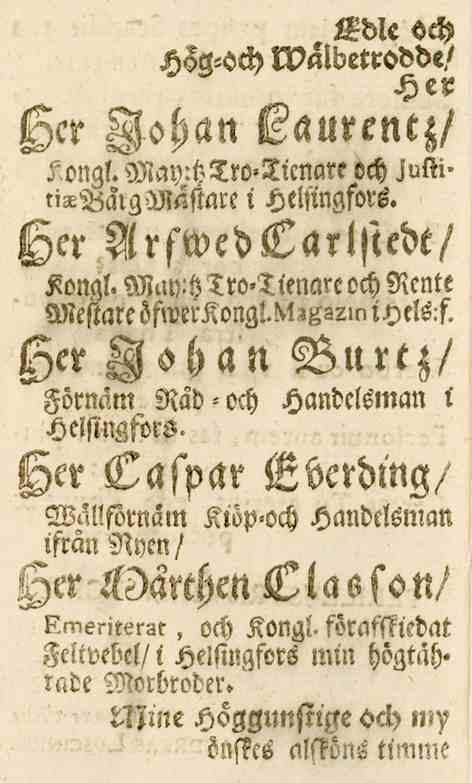 Edle och
Hög-och Wälbetrodde/
Her
Her Johan Laurentz/
Kongl. May:tz Tro-Tienare och Justi-
tiæ Bårg Mästare i Helsingfors.
Her Arfwed Carlstedt/
Kongl. May:tz Tro-Tienare och Rente
Mestare öfwer Kongl. Magazin i Hels:f.
Her Johan Burtz/
Förnäm Råd - och Handelsman i
Helsingfors.
Her Caspar Everding/
Wällförnäm Kiöp-och Handelsman
ifrån Nyen/
Her Mårthen Classon/
Emeriterat, och Kongl. förafskiedat
Feltvebel/ i Helsingfors min högtäh-
rade Morbroder.
Mine Höggunstige och my
önskes alsköns timme